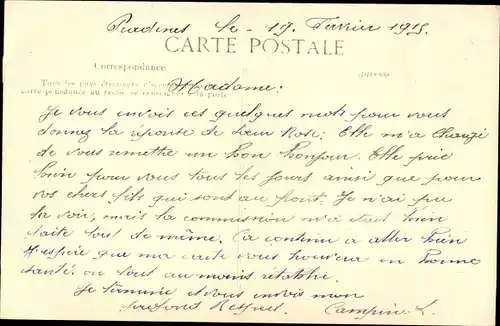 Pradines le - 19 Février 1915.
CARTE POSTALE
Correspondance
Tous les pays étrangers
correspondance au recto se renseigner à la poste
Madame:
Je vous envois ces quelques mots pour vous
donner la réponse de Sœur Rose; Elle m'a Chargé
de vous remettre un bon bonjour. Elle prie
bien pour vous tous les jours ainsi que pour
vos chers fils qui sont au front. Je n'ai pu
la voir, mais la commission m'a était bien
faite tout de même. Ca continu a aller bien
J'espère que ma carte vous trouvera en bonne
santé. ou tout au moins rétablie.
Je termine et vous envois mon
profond Respect. Campin L.